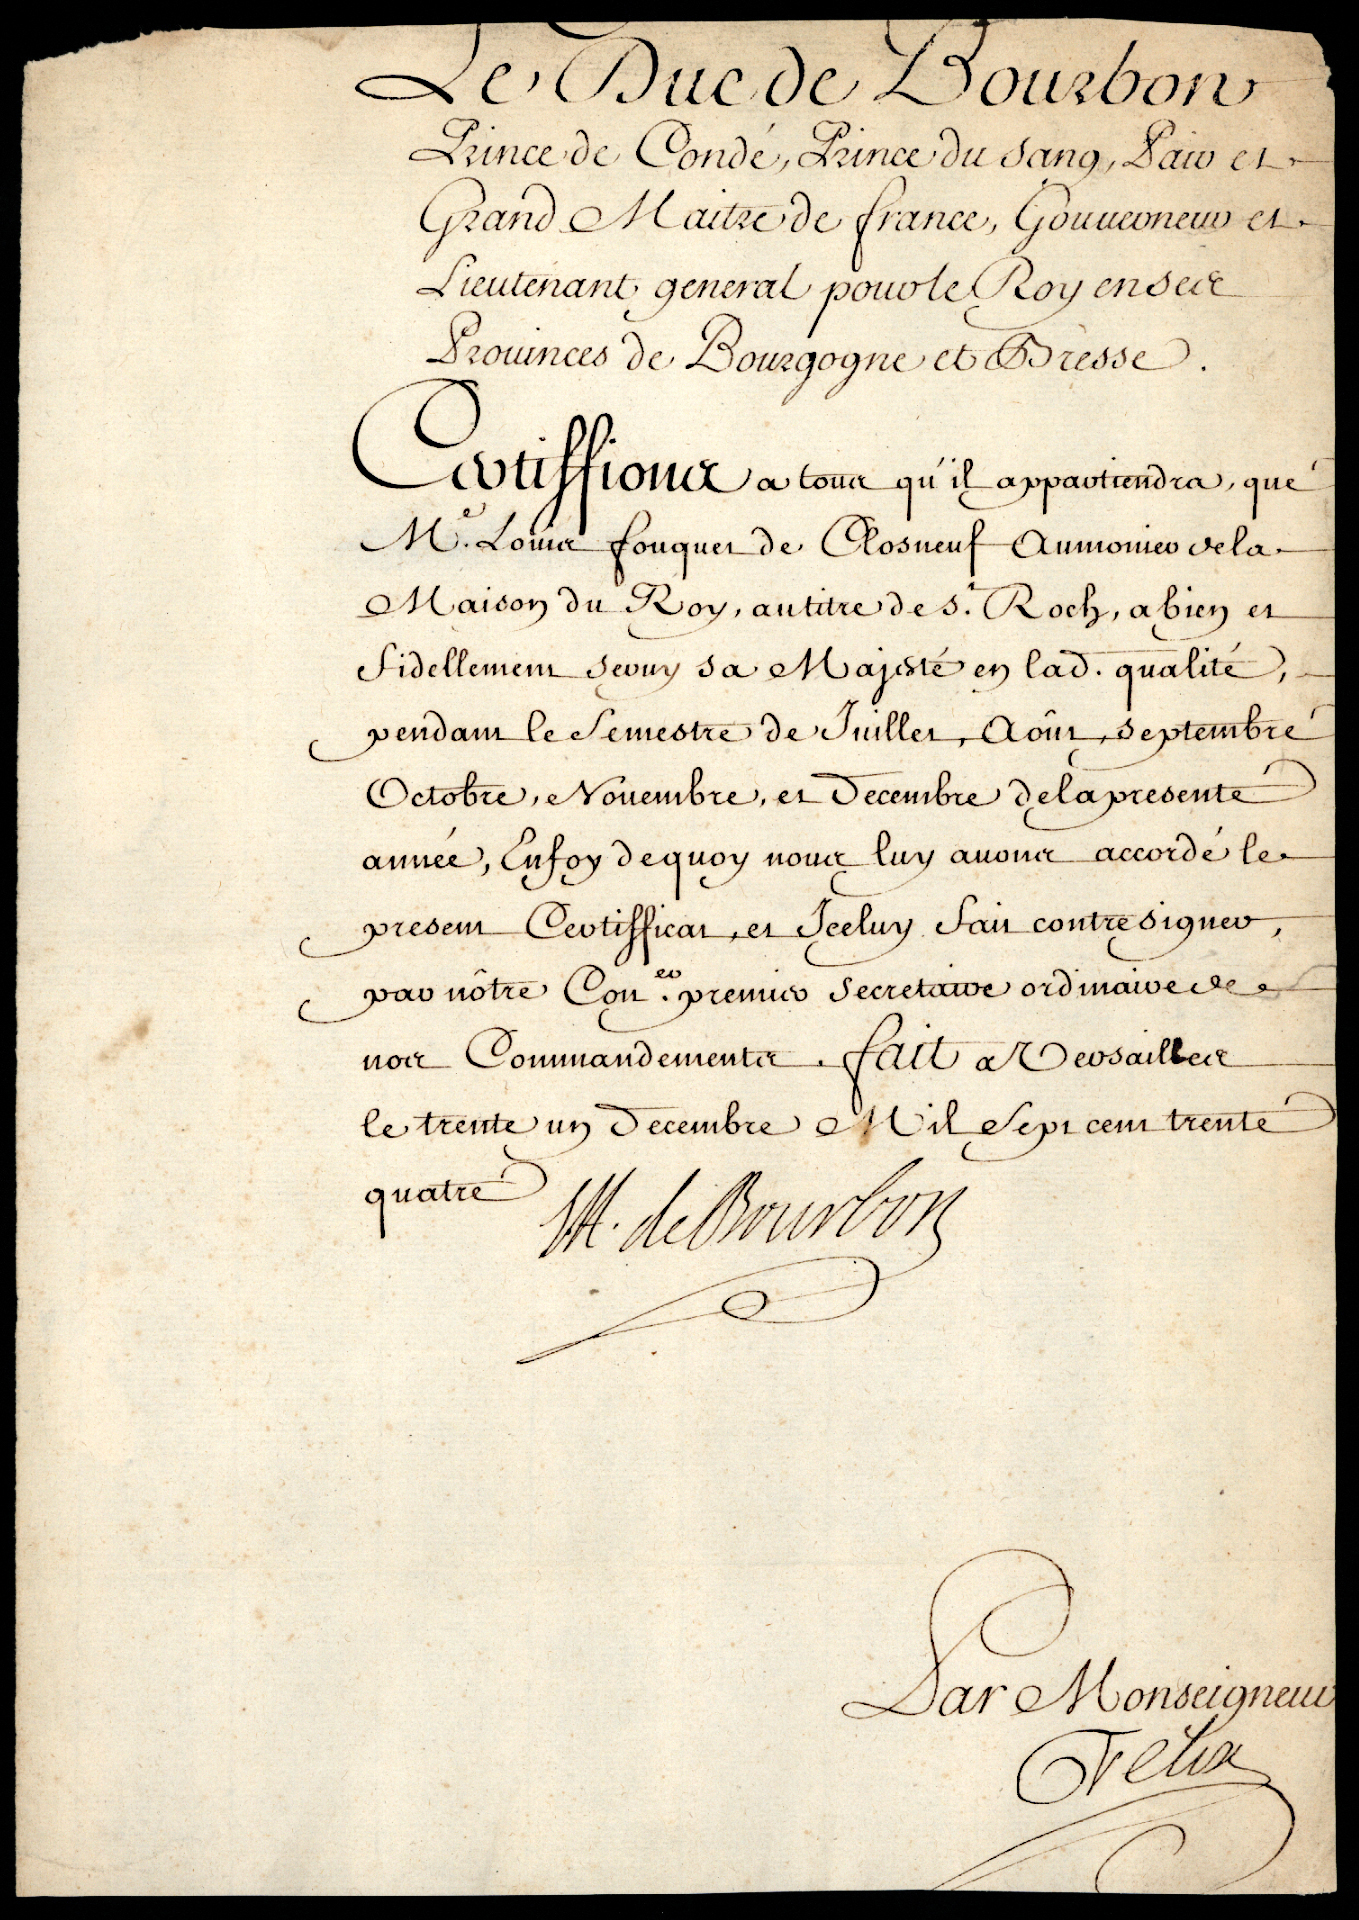 Le Duc de Bourbon
Prince de Condé, Prince du Sang, Pair et
Grand Maitre de france, Gouuerneur et
Lieutenant general pour le Roy en ses
Prouinces de Bourgogne et Bresse.
Certiffions a tous qu'il appartiendra, que
Me. Louis fouquet de Closneuf Aumonier de la
Maison du Roy, au titre de St. Roch, a bien et
fidellement seruy sa Majesté en lad. qualité,
pendant le Semestre de Juillet, Aôut, Septembre
Octobre, Nouembre, et Decembre de la presente
année, En foy de quoy nous luy auons accordé le
present Certifficat, et Iceluy fait contresigner,
par nôtre Coner. premier Secretaire ordinaire de
nos Commandements. fait a Versailles
le trente un Decembre Mil Sept cent trente
quatre
L H. de Bourbon
Par Monseigneur
Felix